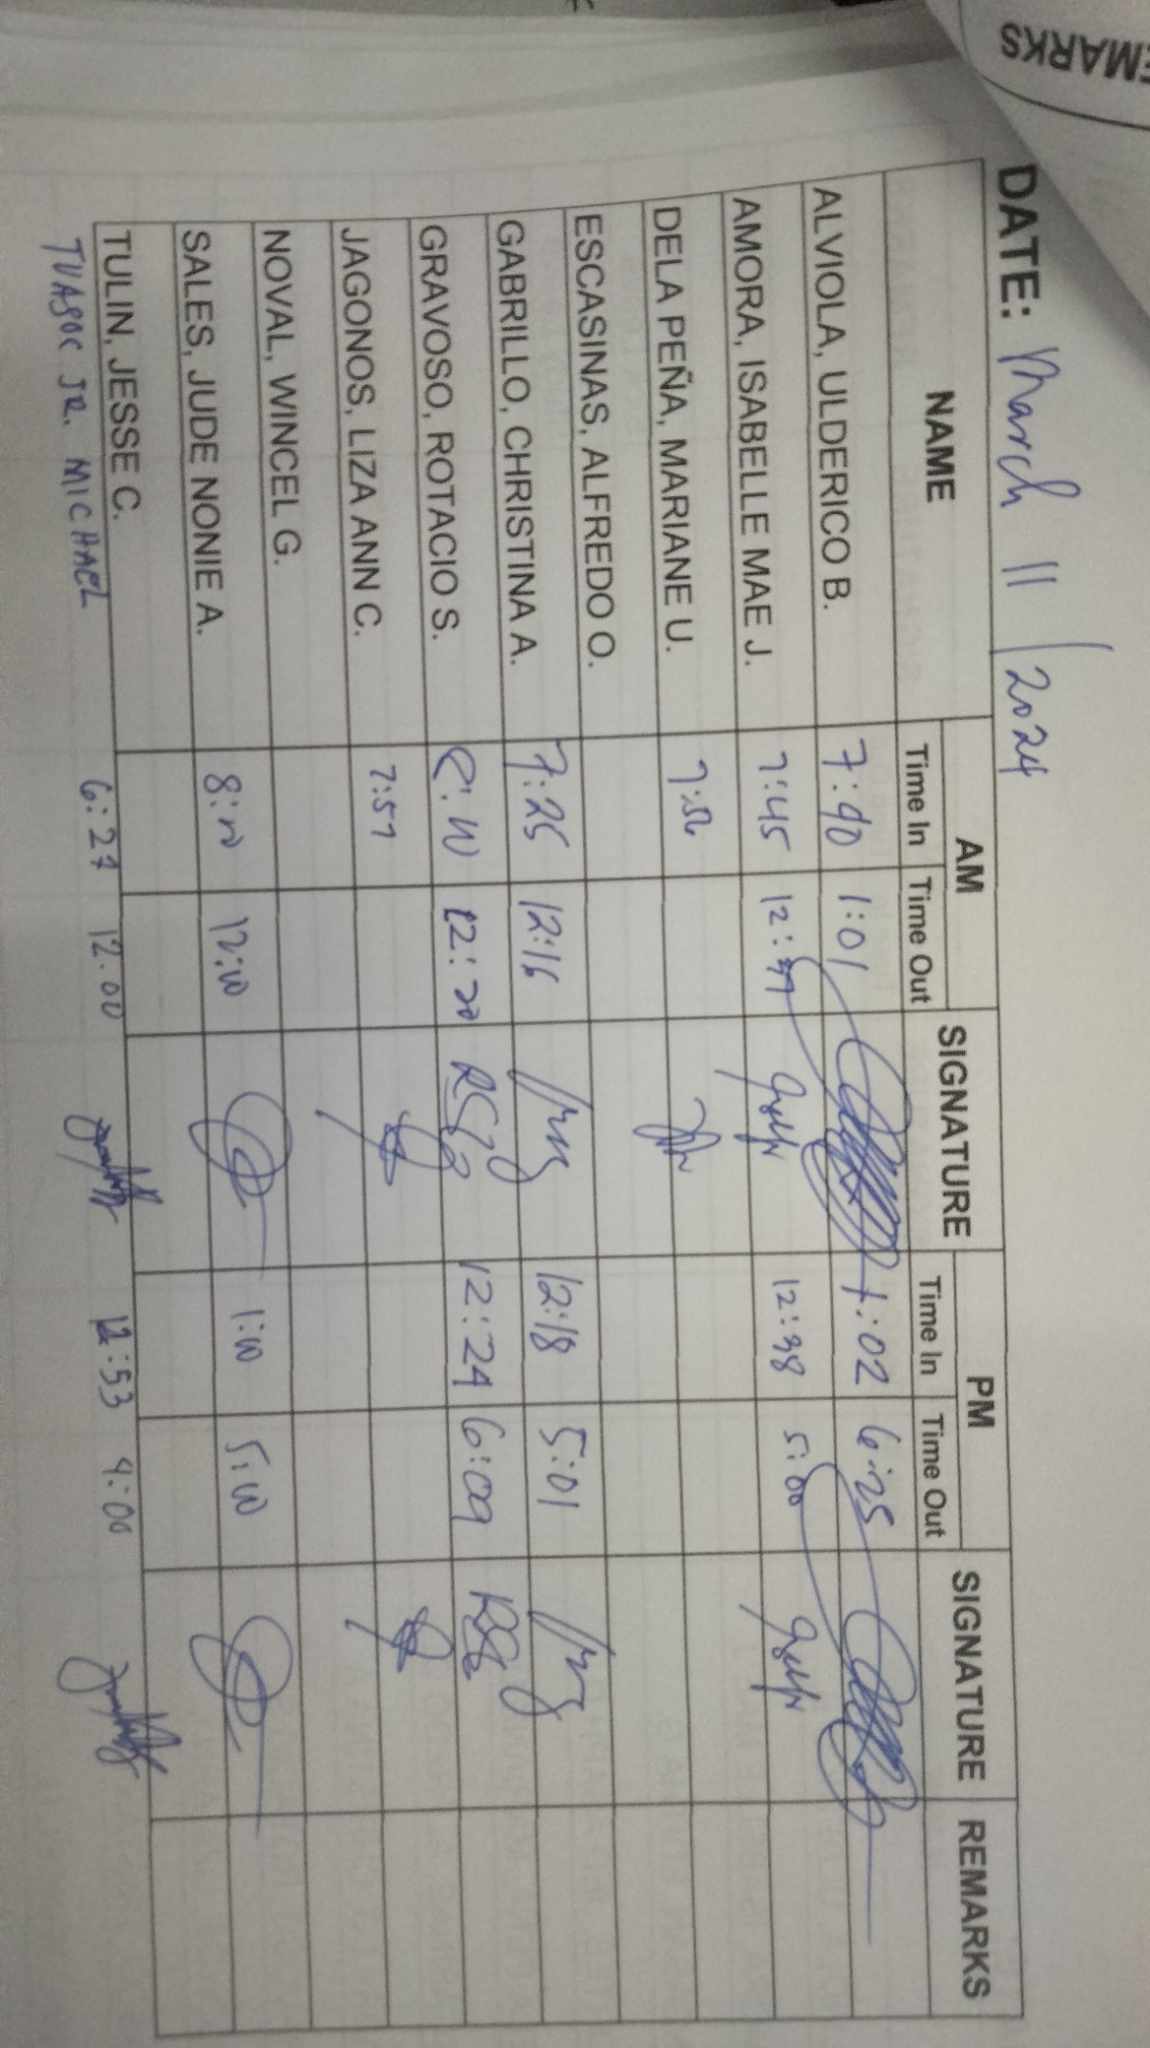 EMARKS
DATE: March 11 / 2024
NAME AM SIGNATURE PM SIGNATURE REMARKS
Time In Time Out Time In Time Out
ALVIOLA, ULDERICO B. 7:40 1:01 1:02 6:25
AMORA, ISABELLE MAE J. 7:45 12:37 12:38 5:00
DELA PEÑA, MARIANE U. 7:56
ESCASINAS, ALFREDO O.
GABRILLO, CHRISTINA A. 7:25 12:16 12:18 5:01
GRAVOSO, ROTACIO S. 8:00 12:20 12:24 6:09
JAGONOS, LIZA ANN C. 7:57
NOVAL, WINCEL G.
SALES, JUDE NONIE A. 8:00 12:00 1:00 5:00
TULIN, JESSE C.
TUASOC JR. MICHAEL 6:27 12.00 12:53 4:00